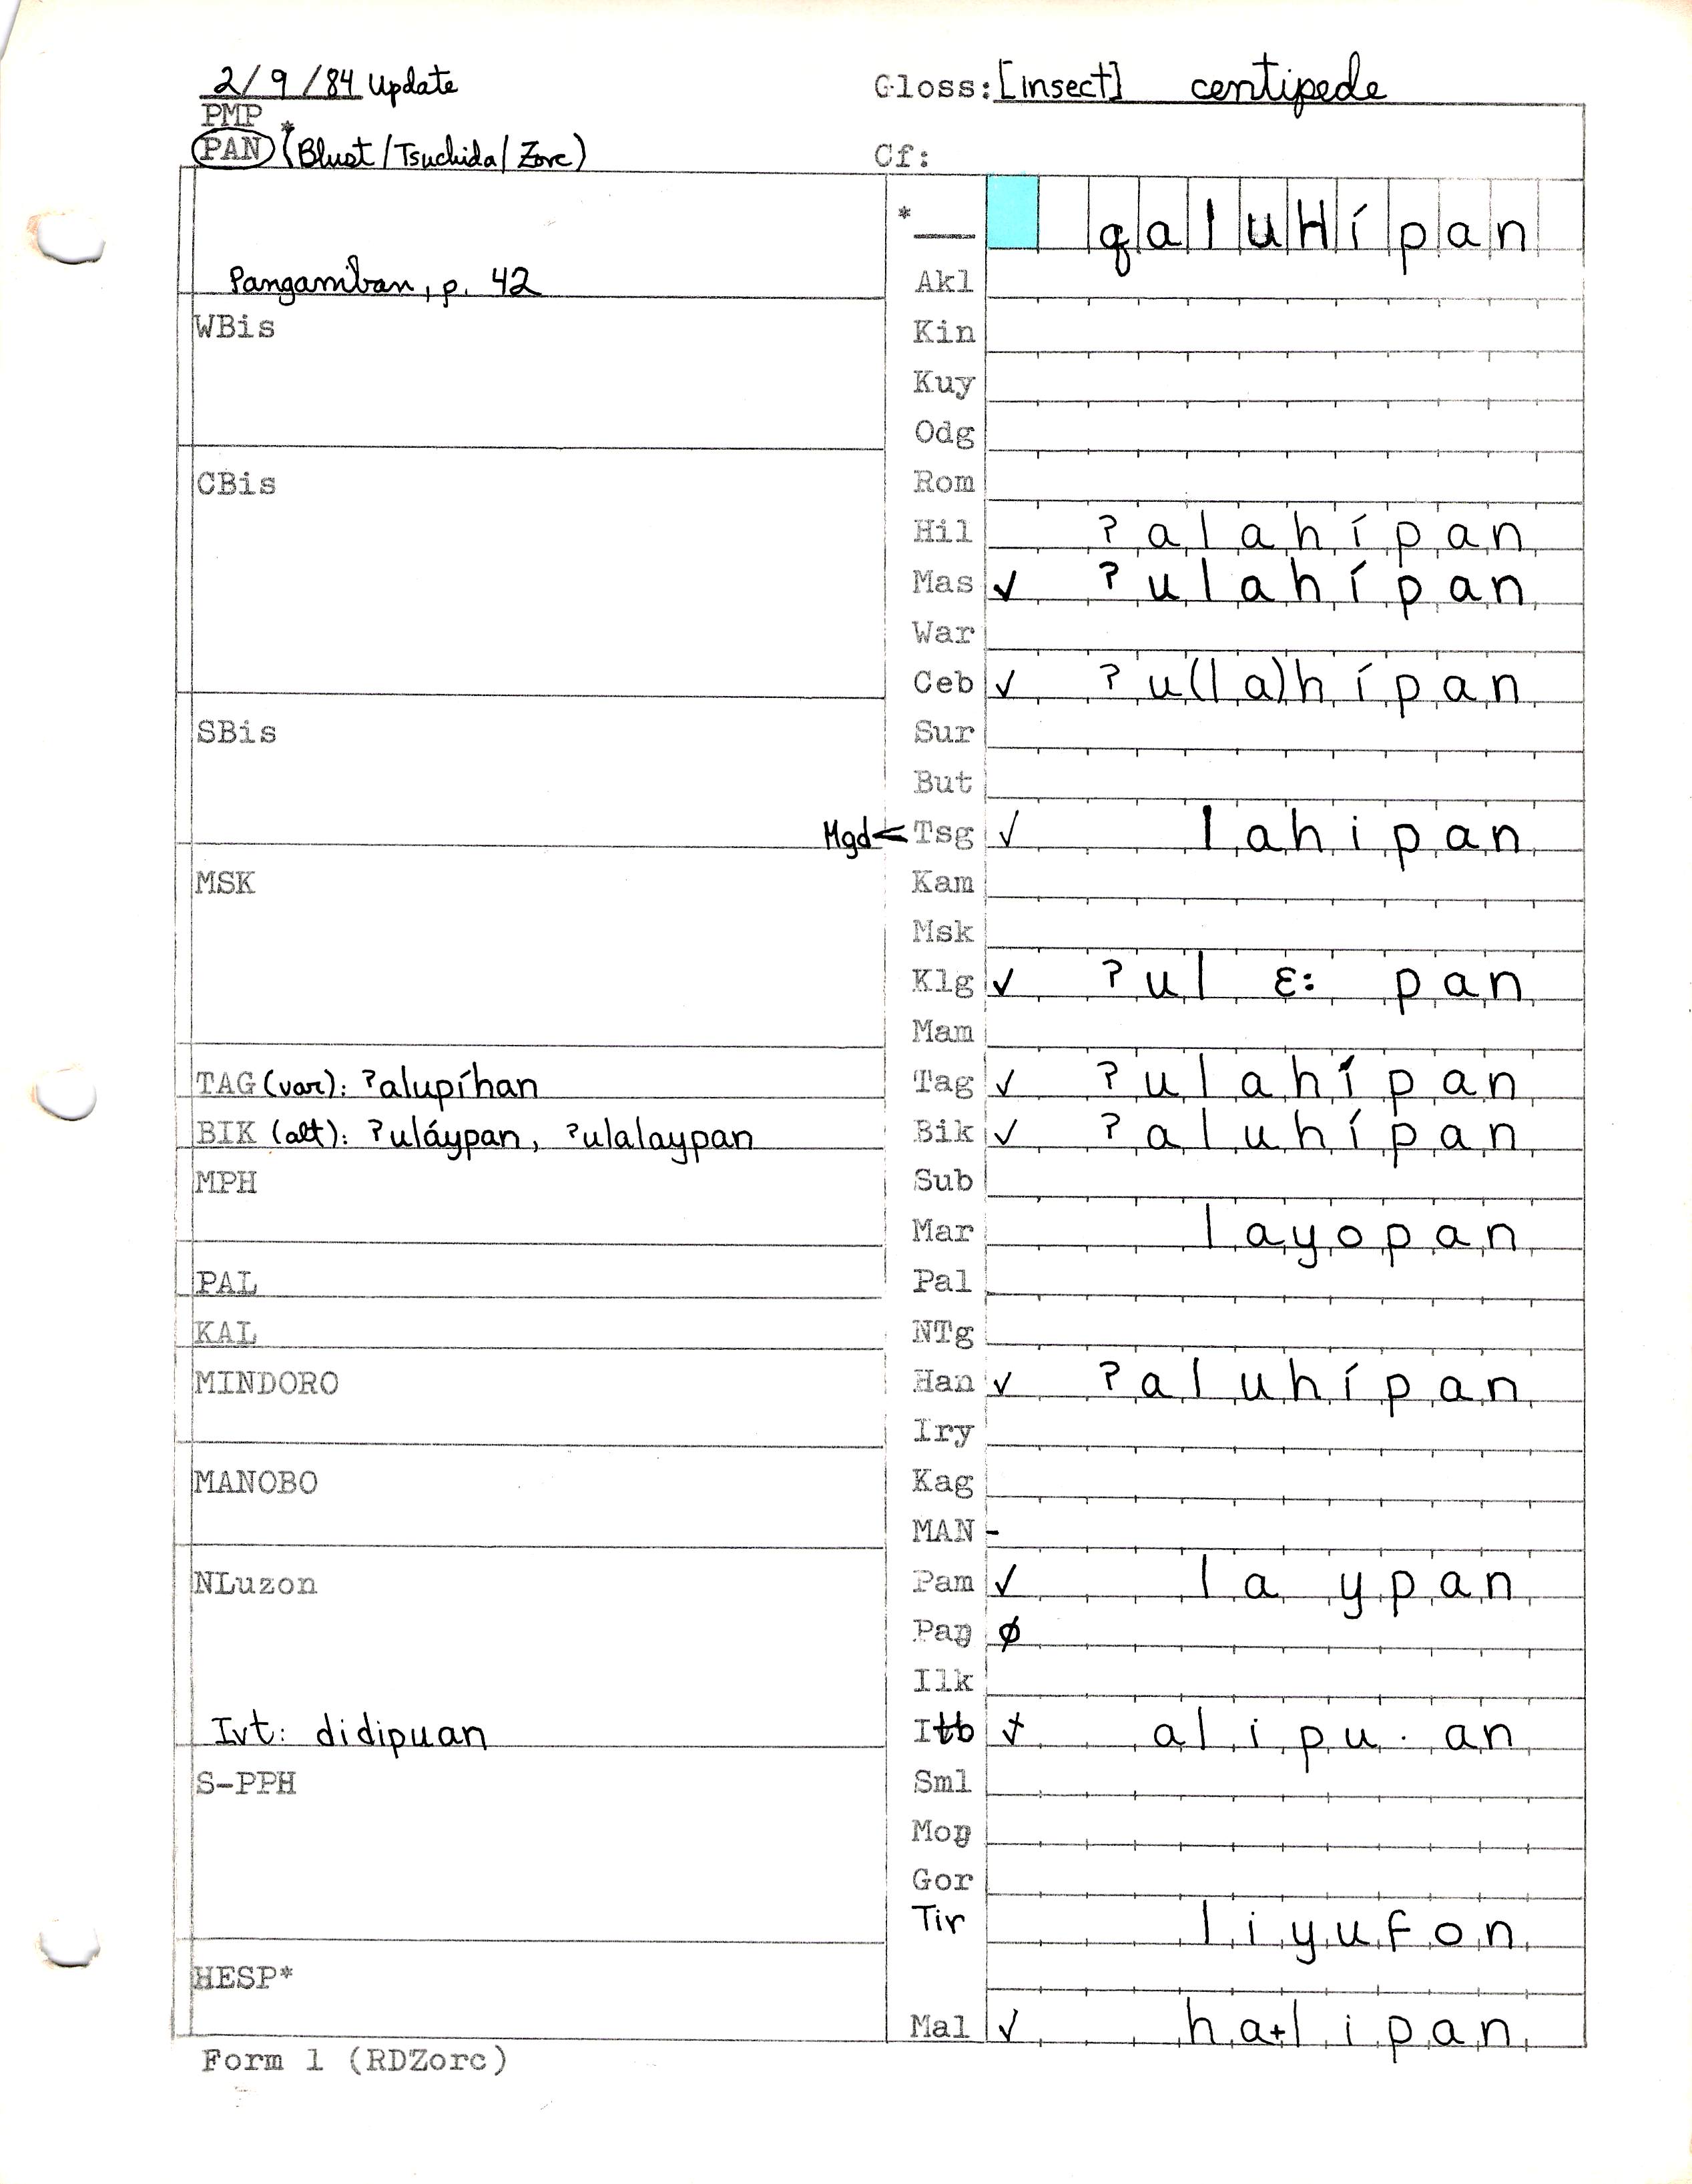 2/9/84 Update Gloss: [insect] centipede
PMP
PAN (*Blust/Tsuchida/Zorc) Cf:
* qaluHípan
Pangamiban, p. 42 Akl
WBis Kin
Kuy
Odg
CBis Rom
Hil ʔalahípan
Mas ✓ ʔulahípan
War
Ceb ✓ ʔu(la)hípan
SBis Sur
But
Mgd < Tsg ✓ lahipan
MSK Kam
Msk
Klg ✓ ʔulɛ:pan
Mam
TAG (var): ʔalupíhan Tag ✓ ʔulahípan
BIK (alt): ʔuláypan, ʔulalaypan Bik ✓ ʔaluhípan
MPH Sub
Mar layopan
PAL Pal
KAL NTg
MINDORO Han ✓ ʔaluhípan
Iry
MANOBO Kag
MAN -
NLuzon Pam ✓ laypan
Paŋ ø
Ilk
Ivt: didipuan Itb ✓ alipu·an
S-PPH Sml
Moŋ
Gor
Tir liyufon
HESP*
Mal ✓ ha+lipan
Form 1 (RDZorc)